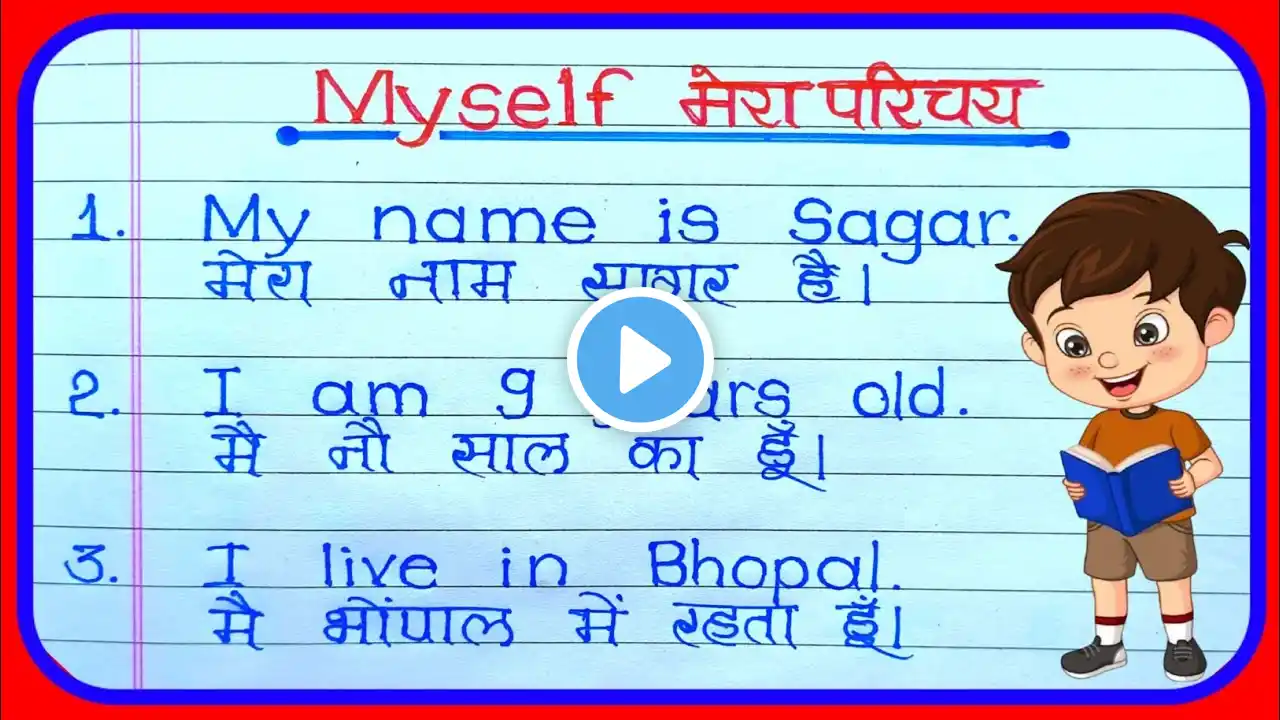 Myself मेरा परिचय
1. My name is Sagar.
मेरा नाम सागर है।
2. I am 9 years old.
मै नौ साल का हूँ।
3. I live in Bhopal.
मै भोंपाल में रहता हूँ।